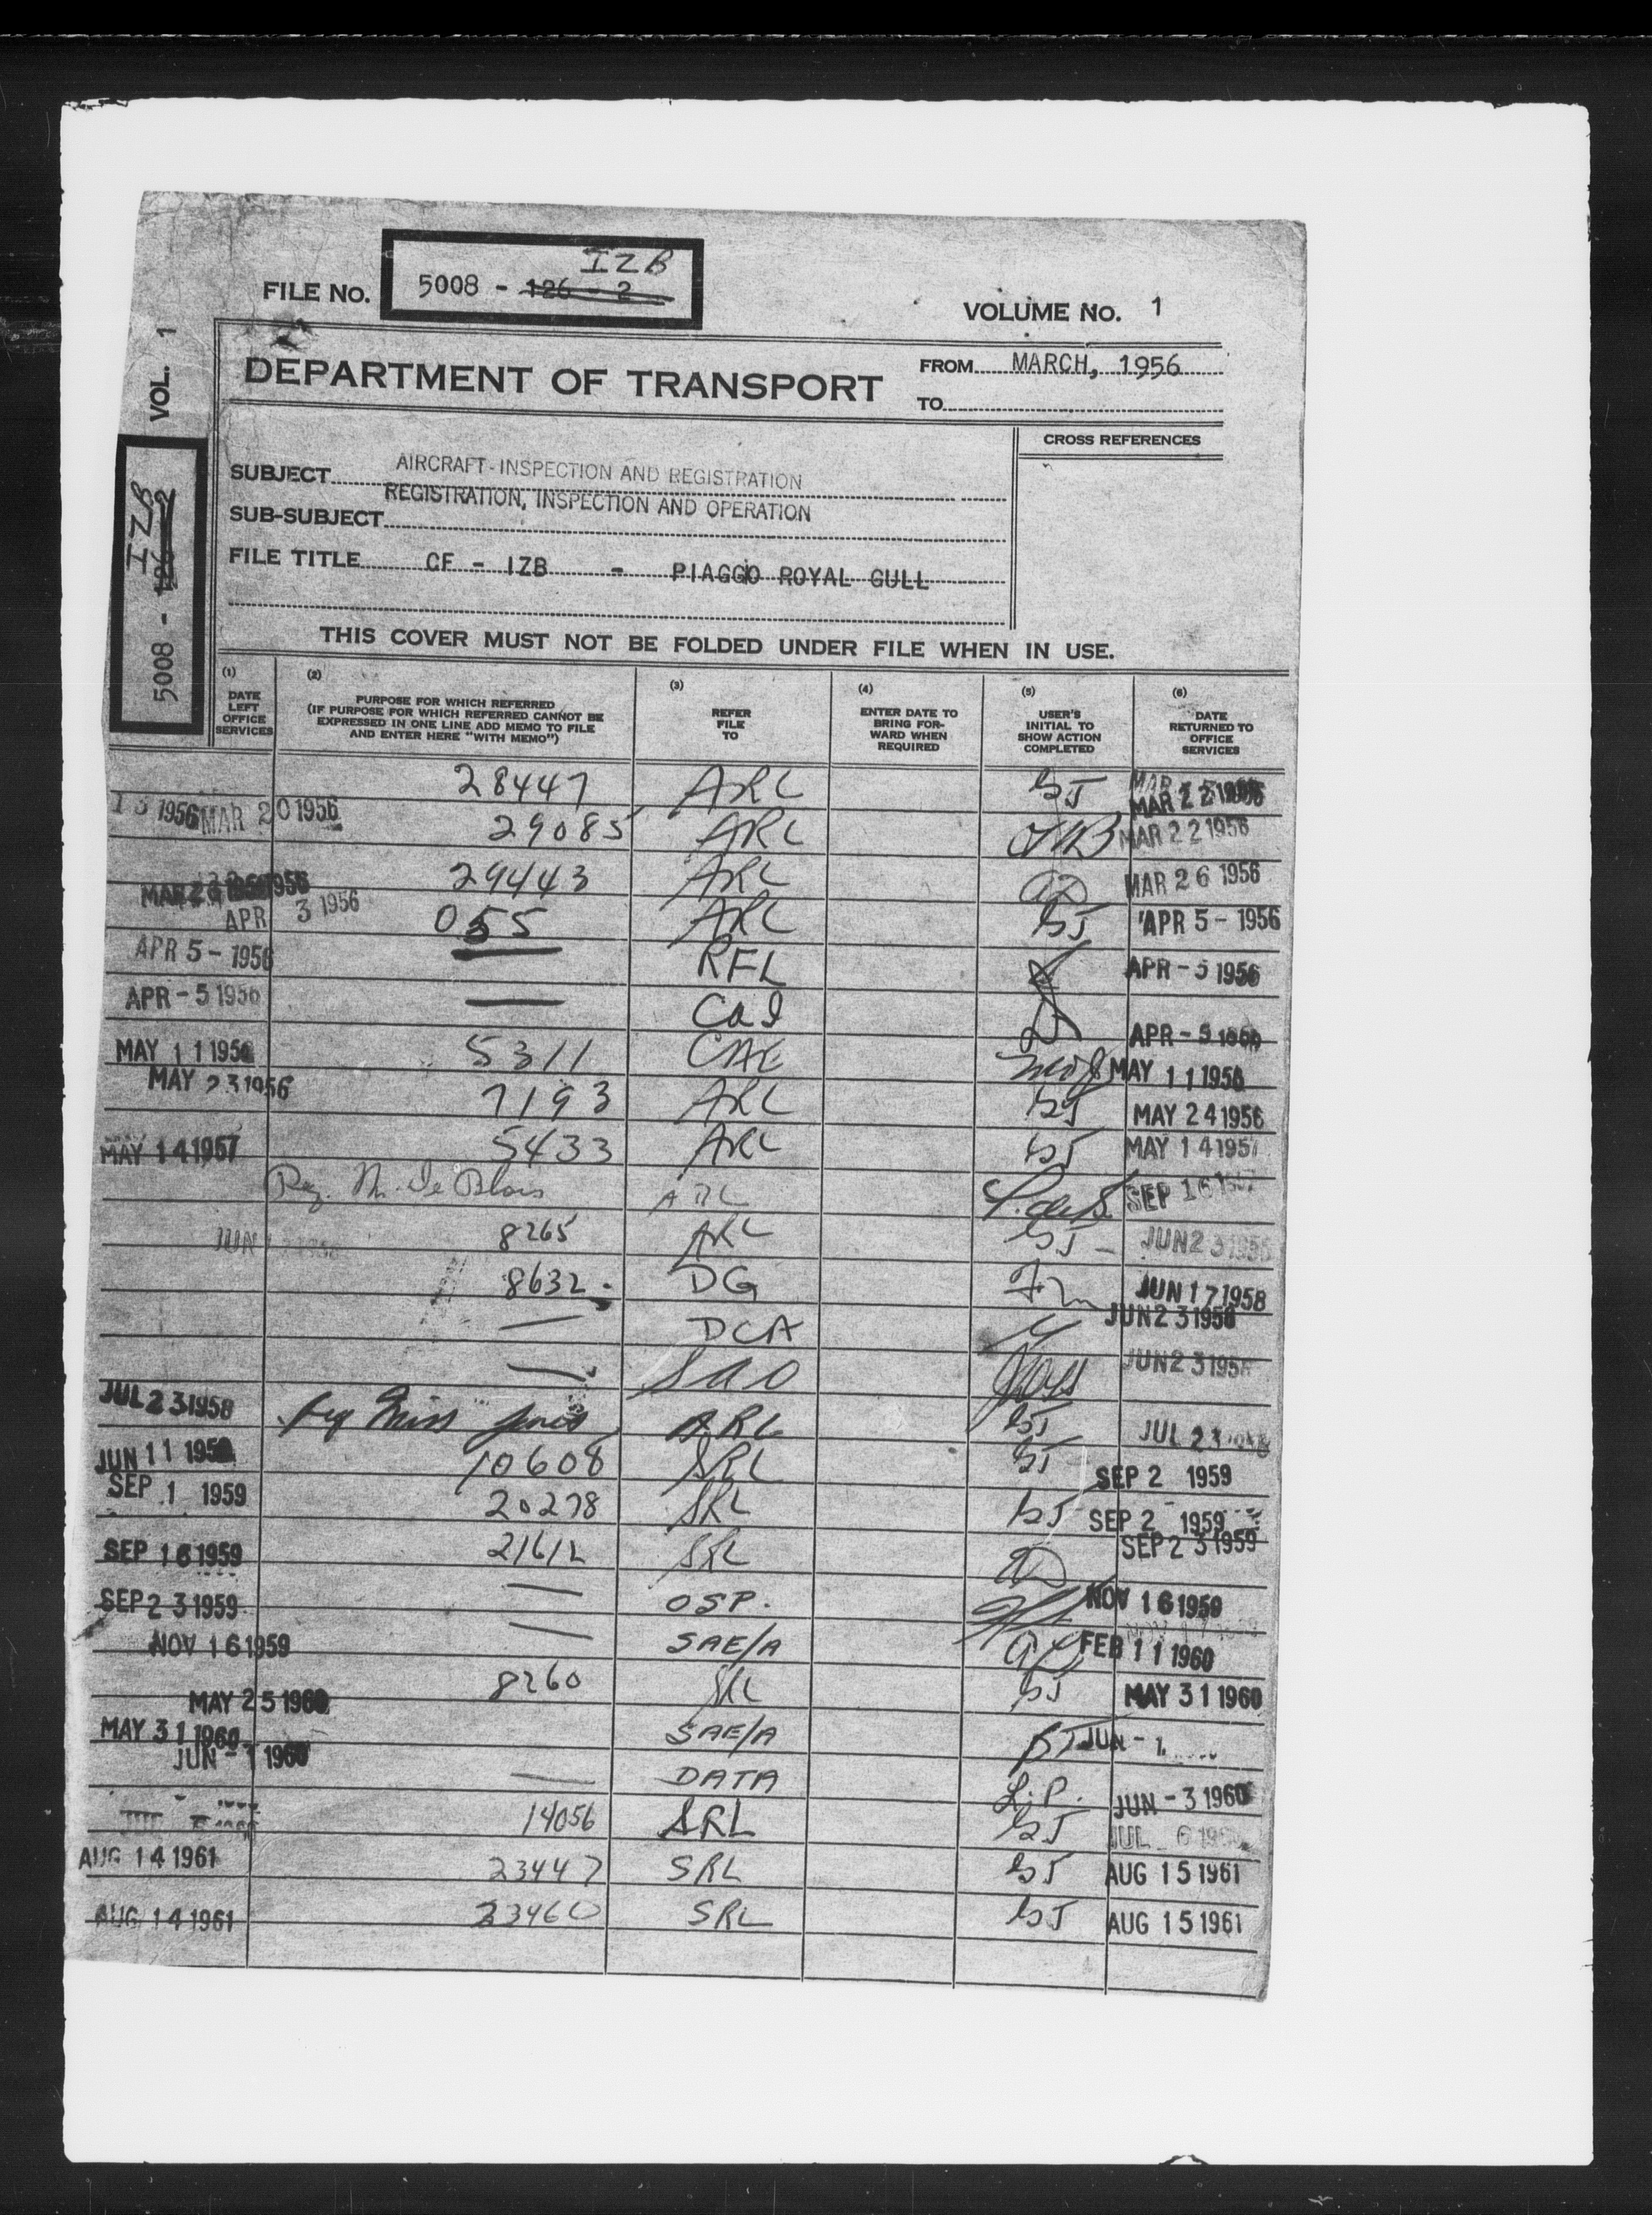 IZB
FILE NO. 5008 - 126 - 2
VOLUME NO. 1
VOL. 1
5008 - 126 - 2 IZB
DEPARTMENT OF TRANSPORT
FROM MARCH, 1956
TO
CROSS REFERENCES
SUBJECT AIRCRAFT-INSPECTION AND REGISTRATION
SUB-SUBJECT REGISTRATION, INSPECTION AND OPERATION
FILE TITLE CF - IZB - PIAGGIO ROYAL GULL
THIS COVER MUST NOT BE FOLDED UNDER FILE WHEN IN USE.
(1) DATE LEFT OFFICE SERVICES
(2) PURPOSE FOR WHICH REFERRED (IF PURPOSE FOR WHICH REFERRED CANNOT BE EXPRESSED IN ONE LINE ADD MEMO TO FILE AND ENTER HERE "WITH MEMO")
(3) REFER FILE TO
(4) ENTER DATE TO BRING FORWARD WHEN REQUIRED
(5) USER'S INITIAL TO SHOW ACTION COMPLETED
(6) DATE RETURNED TO OFFICE SERVICES
28447 ARL BJ MAR 22 1956
MAR 20 1956 29085 ARL MAR 22 1956
29443 ARL MAR 26 1956
APR 3 1956 055 ARL BJ APR 5 - 1956
APR 5 - 1956 RFL APR - 5 1956
APR - 5 1956 CAI APR - 5 1956
MAY 11 1956 5311 CAE MAY 11 1956
MAY 23 1956 7193 ARL BJ MAY 24 1956
MAY 14 1957 5433 ARL BJ MAY 14 1957
Req. M. De Blois ARL SEP 16 1957
JUN 1958 8265 ARL BJ JUN 23 1958
8632 DG JUN 17 1958
— DCA JUN 23 1958
— SAO JUN 23 1958
JUL 23 1958 Req Miss Jones ARL BJ JUL 23 1958
JUN 11 1959 10608 SRL BJ SEP 2 1959
SEP 1 1959 20278 SRL BJ SEP 2 1959
SEP 16 1959 21612 SRL SEP 23 1959
SEP 23 1959 — OSP. NOV 16 1959
NOV 16 1959 — SAE/A FEB 11 1960
MAY 25 1960 8260 SRL BJ MAY 31 1960
MAY 31 1960 SAE/A JUN - 1
JUN - 1 1960 — DATA L.P. JUN - 3 1960
14056 SRL BJ JUL 6 1960
AUG 14 1961 23447 SRL BJ AUG 15 1961
AUG 14 1961 23460 SRL BJ AUG 15 1961